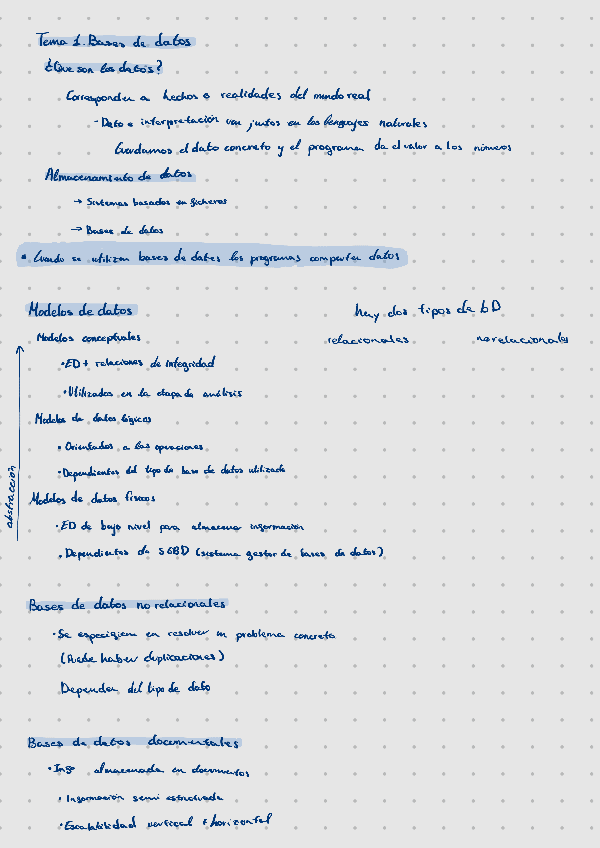 Tema 1. Bases de datos
¿Que son los datos?
Corresponden a hechos o realidades del mundo real
- Dato e interpretación van juntos en los lenguajes naturales
Guardamos el dato concreto y el programa da el valor a los números
Almacenamiento de datos
→ Sistemas basados en ficheros
→ Bases de datos
• Cuando se utilizan bases de datos los programas comparten datos
Modelos de datos
hay dos tipos de bD
relacionales no relacionales
Modelos conceptuales
• ED + relaciones de integridad
• Utilizados en la etapa de análisis
Modelos de datos lógicos
• Orientados a las operaciones
• Dependientes del tipo de base de datos utilizada
Modelos de datos físicos
• ED de bajo nivel para almacenar información
• Dependientes de SGBD (sistema gestor de bases de datos)
abstracción
Bases de datos no relacionales
• Se especifican en resolver un problema concreto
(Puede haber duplicaciones)
Depender del tipo de dato
Bases de datos documentales
• Info almacenada en documentos
• Información semi estructurada
• Escalabilidad vertical + horizontal